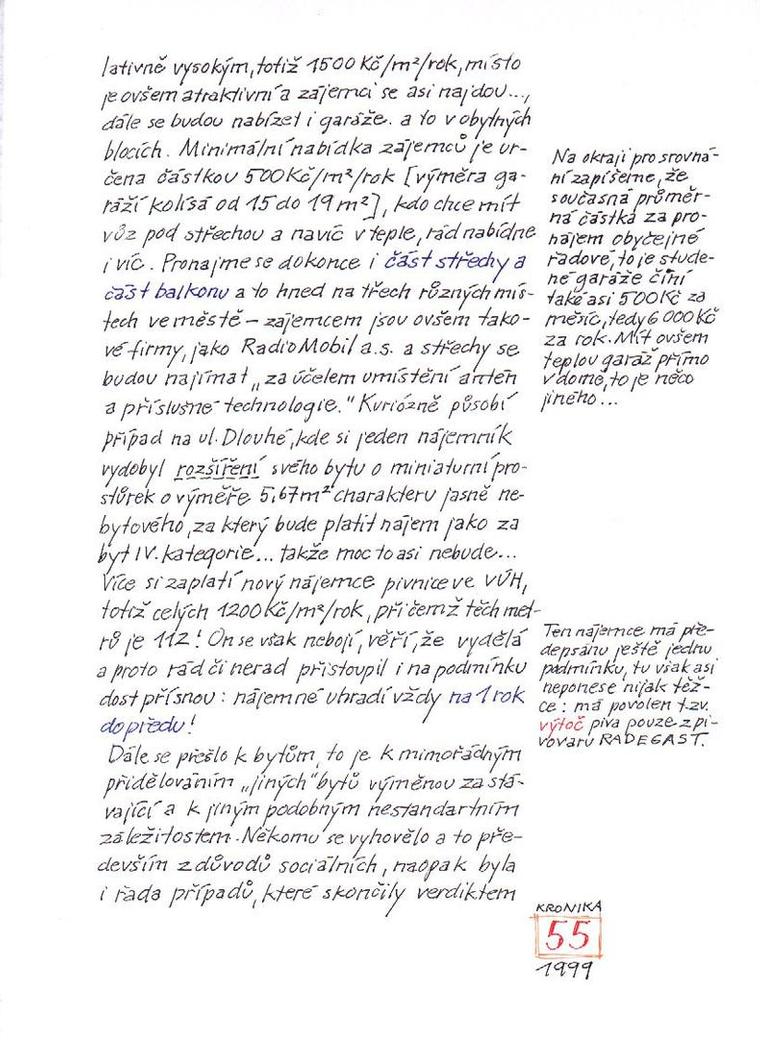 lativně vysokým, totiž 1500 Kč/m²/rok, místo
je ovšem atraktivní a zájemci se asi najdou...,
dále se budou nabízet i garáže. a to v obytných
blocích. Minimální nabídka zájemců je ur-
čena částkou 500 Kč/m²/rok [výměra ga-
ráží kolísá od 15 do 19 m²], kdo chce mít
vůz pod střechou a navíc v teple, rád nabídne
i víc. Pronajme se dokonce i část střechy a
část balkonu a to hned na třech různých mís-
tech ve městě – zájemcem jsou ovšem tako-
vé firmy, jako RadioMobil a.s. a střechy se
budou najímat „za účelem umístění antén
a příslušné technologie." Kuriózně působí
případ na ul. Dlouhé, kde si jeden nájemník
vydobyl rozšíření svého bytu o miniaturní pro-
stůrek o výměře 5,67 m² charakteru jasně ne-
bytového, za který bude platit nájem jako za
byt IV. kategorie... takže moc to asi nebude...
Více si zaplatí nový nájemce pivnice ve VÚH,
totiž celých 1200 Kč/m²/rok, při čemž těch met-
rů je 112! On se však nebojí, věří, že vydělá
a proto rád či nerad přistoupil i na podmínku
dost přísnou: nájemné uhradí vždy na 1 rok
dopředu!
Dále se přešlo k bytům, to je k mimořádným
přidělováním „jiných" bytů výměnou za stá-
vající a k jiným podobným nestandartním
záležitostem. Někomu se vyhovělo a to pře-
devším z důvodů sociálních, naopak byla
i řada případů, které skončily verdiktem
Na okraji pro srovná-
ní zapíšeme, že
současná průměr-
ná částka za pro-
nájem obyčejné
řadové, to je stude-
né garáže činí
také asi 500 Kč za
měsíc, tedy 6 000 Kč
za rok. Mít ovšem
teplou garáž přímo
v domě, to je něco
jiného...
Ten nájemce má pře-
depsánu ještě jednu
podmínku, tu však asi
neponese nijak těž-
ce: má povolen t.zv.
výtoč piva pouze z pi-
vovaru RADEGAST.
KRONIKA
55
1999